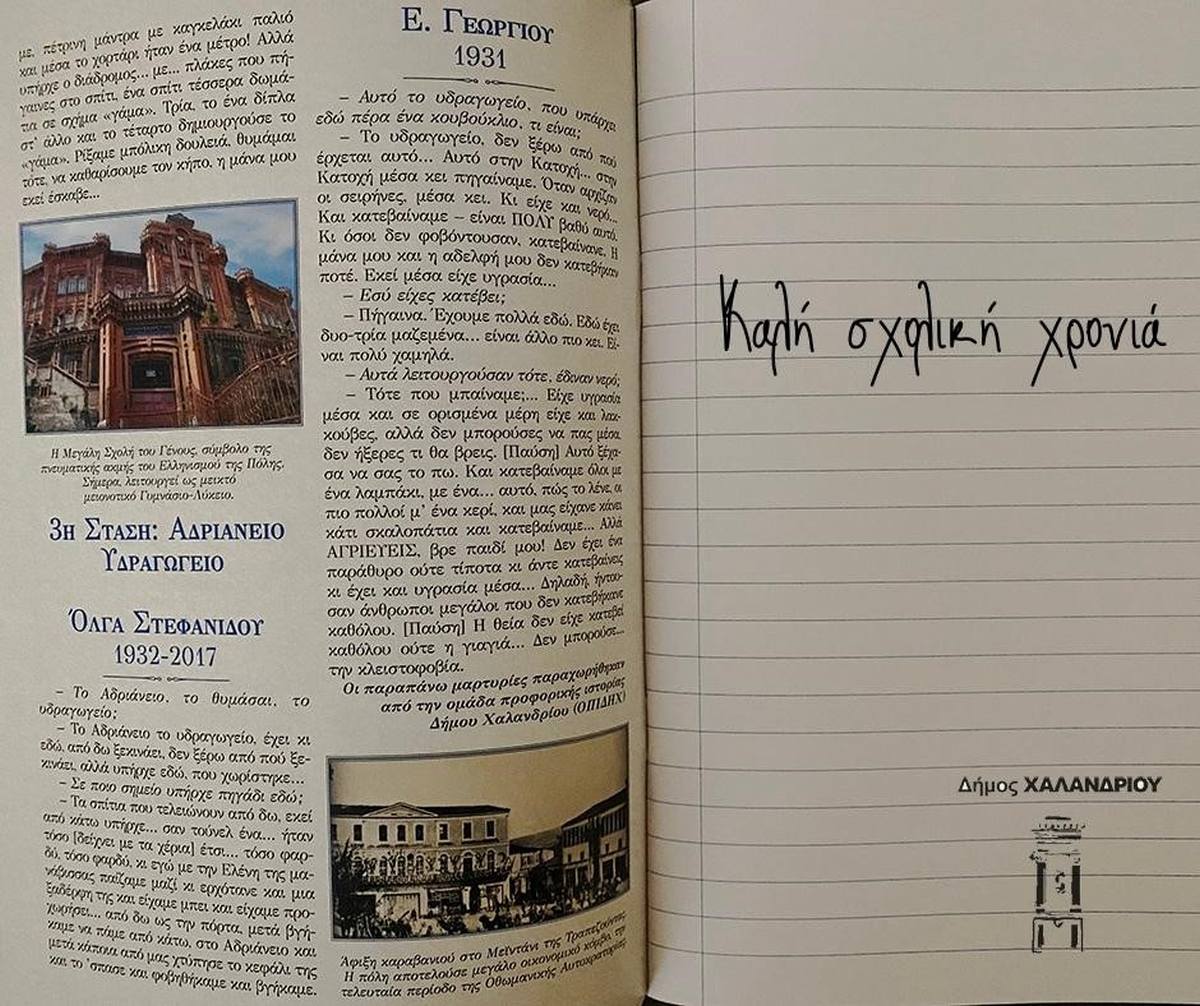 με, πέτρινη μάντρα με καγκελάκι παλιό
και μέσα το χορτάρι ήταν ένα μέτρο! Αλλά
υπήρχε ο διάδρομος... με... πλάκες που πή-
γαινες στο σπίτι, ένα σπίτι τέσσερα δωμά-
τια σε σχήμα «γάμα». Τρία, το ένα δίπλα
στ' άλλο και το τέταρτο δημιουργούσε το
«γάμα». Ρίξαμε μπόλικη δουλειά, θυμάμαι
τότε, να καθαρίσουμε τον κήπο, η μάνα μου
εκεί έσκαβε...
Η Μεγάλη Σχολή του Γένους, σύμβολο της
πνευματικής ακμής του Ελληνισμού της Πόλης.
Σήμερα, λειτουργεί ως μεικτό
μειονοτικό Γυμνάσιο-Λύκειο.
3η Σταση: Αδριανειο
Υδραγωγειο
Όλγα Στεφανιδου
1932-2017
– Το Αδριάνειο, το θυμάσαι, το
υδραγωγείο;
– Το Αδριάνειο το υδραγωγείο, έχει κι
εδώ, από δω ξεκινάει, δεν ξέρω από πού ξε-
κινάει, αλλά υπήρχε εδώ, που χωρίστηκε...
– Σε ποιο σημείο υπήρχε πηγάδι εδώ;
– Τα σπίτια που τελειώνουν από δω, εκεί
από κάτω υπήρχε... σαν τούνελ ένα... ήταν
τόσο [δείχνει με τα χέρια] έτσι... τόσο φαρ-
δύ, τόσο φαρδύ, κι εγώ με την Ελένη της μα-
νάβισσας παίζαμε μαζί κι ερχότανε και μια
ξαδέρφη της και είχαμε μπει και είχαμε προ-
χωρήσει... από δω ως την πόρτα, μετά βγή-
καμε να πάμε από κάτω, στο Αδριάνειο και
μετά κάποια από μας χτύπησε το κεφάλι της
και το 'σπασε και φοβηθήκαμε και βγήκαμε.
Ε. Γεωργιου
1931
– Αυτό το υδραγωγείο, που υπάρχει
εδώ πέρα ένα κουβούκλιο, τι είναι;
– Το υδραγωγείο, δεν ξέρω από πού
έρχεται αυτό... Αυτό στην Κατοχή... στην
Κατοχή μέσα κει πηγαίναμε. Όταν αρχίζαν
οι σειρήνες, μέσα κει. Κι είχε και νερό...
Και κατεβαίναμε – είναι ΠΟΛΥ βαθύ αυτό.
Κι όσοι δεν φοβόντουσαν, κατεβαίνανε. Η
μάνα μου και η αδελφή μου δεν κατεβήκαν
ποτέ. Εκεί μέσα είχε υγρασία...
– Εσύ είχες κατέβει;
– Πήγαινα. Έχουμε πολλά εδώ. Εδώ έχει
δυο-τρία μαζεμένα... είναι άλλο πιο κει. Εί-
ναι πολύ χαμηλά.
– Αυτά λειτουργούσαν τότε, έδιναν νερό;
– Τότε που μπαίναμε;... Είχε υγρασία
μέσα και σε ορισμένα μέρη είχε και λακ-
κούβες, αλλά δεν μπορούσες να πας μέσα,
δεν ήξερες τι θα βρεις. [Παύση] Αυτό ξέχα-
σα να σας το πω. Και κατεβαίναμε όλοι με
ένα λαμπάκι, με ένα... αυτό, πώς το λένε, οι
πιο πολλοί μ' ένα κερί, και μας είχανε κάνει
κάτι σκαλοπάτια και κατεβαίναμε... Αλλά
ΑΓΡΙΕΥΕΙΣ, βρε παιδί μου! Δεν έχει ένα
παράθυρο ούτε τίποτα κι άντε κατεβαίνεις
κι έχει και υγρασία μέσα... Δηλαδή, ήντου-
σαν άνθρωποι μεγάλοι που δεν κατεβήκανε
καθόλου. [Παύση] Η θεία δεν είχε κατεβεί
καθόλου ούτε η γιαγιά... Δεν μπορούσε...
την κλειστοφοβία.
Οι παραπάνω μαρτυρίες παραχωρήθηκαν
από την ομάδα προφορικής ιστορίας
Δήμου Χαλανδρίου (ΟΠΙΔΗΧ)
Άφιξη καραβανιού στο Μεϊντάνι της Τραπεζούντας.
Η πόλη αποτελούσε μεγάλο οικονομικό κόμβο, την
τελευταία περίοδο της Οθωμανικής Αυτοκρατορίας.
Καλή σχολική χρονιά
Δήμος ΧΑΛΑΝΔΡΙΟΥ